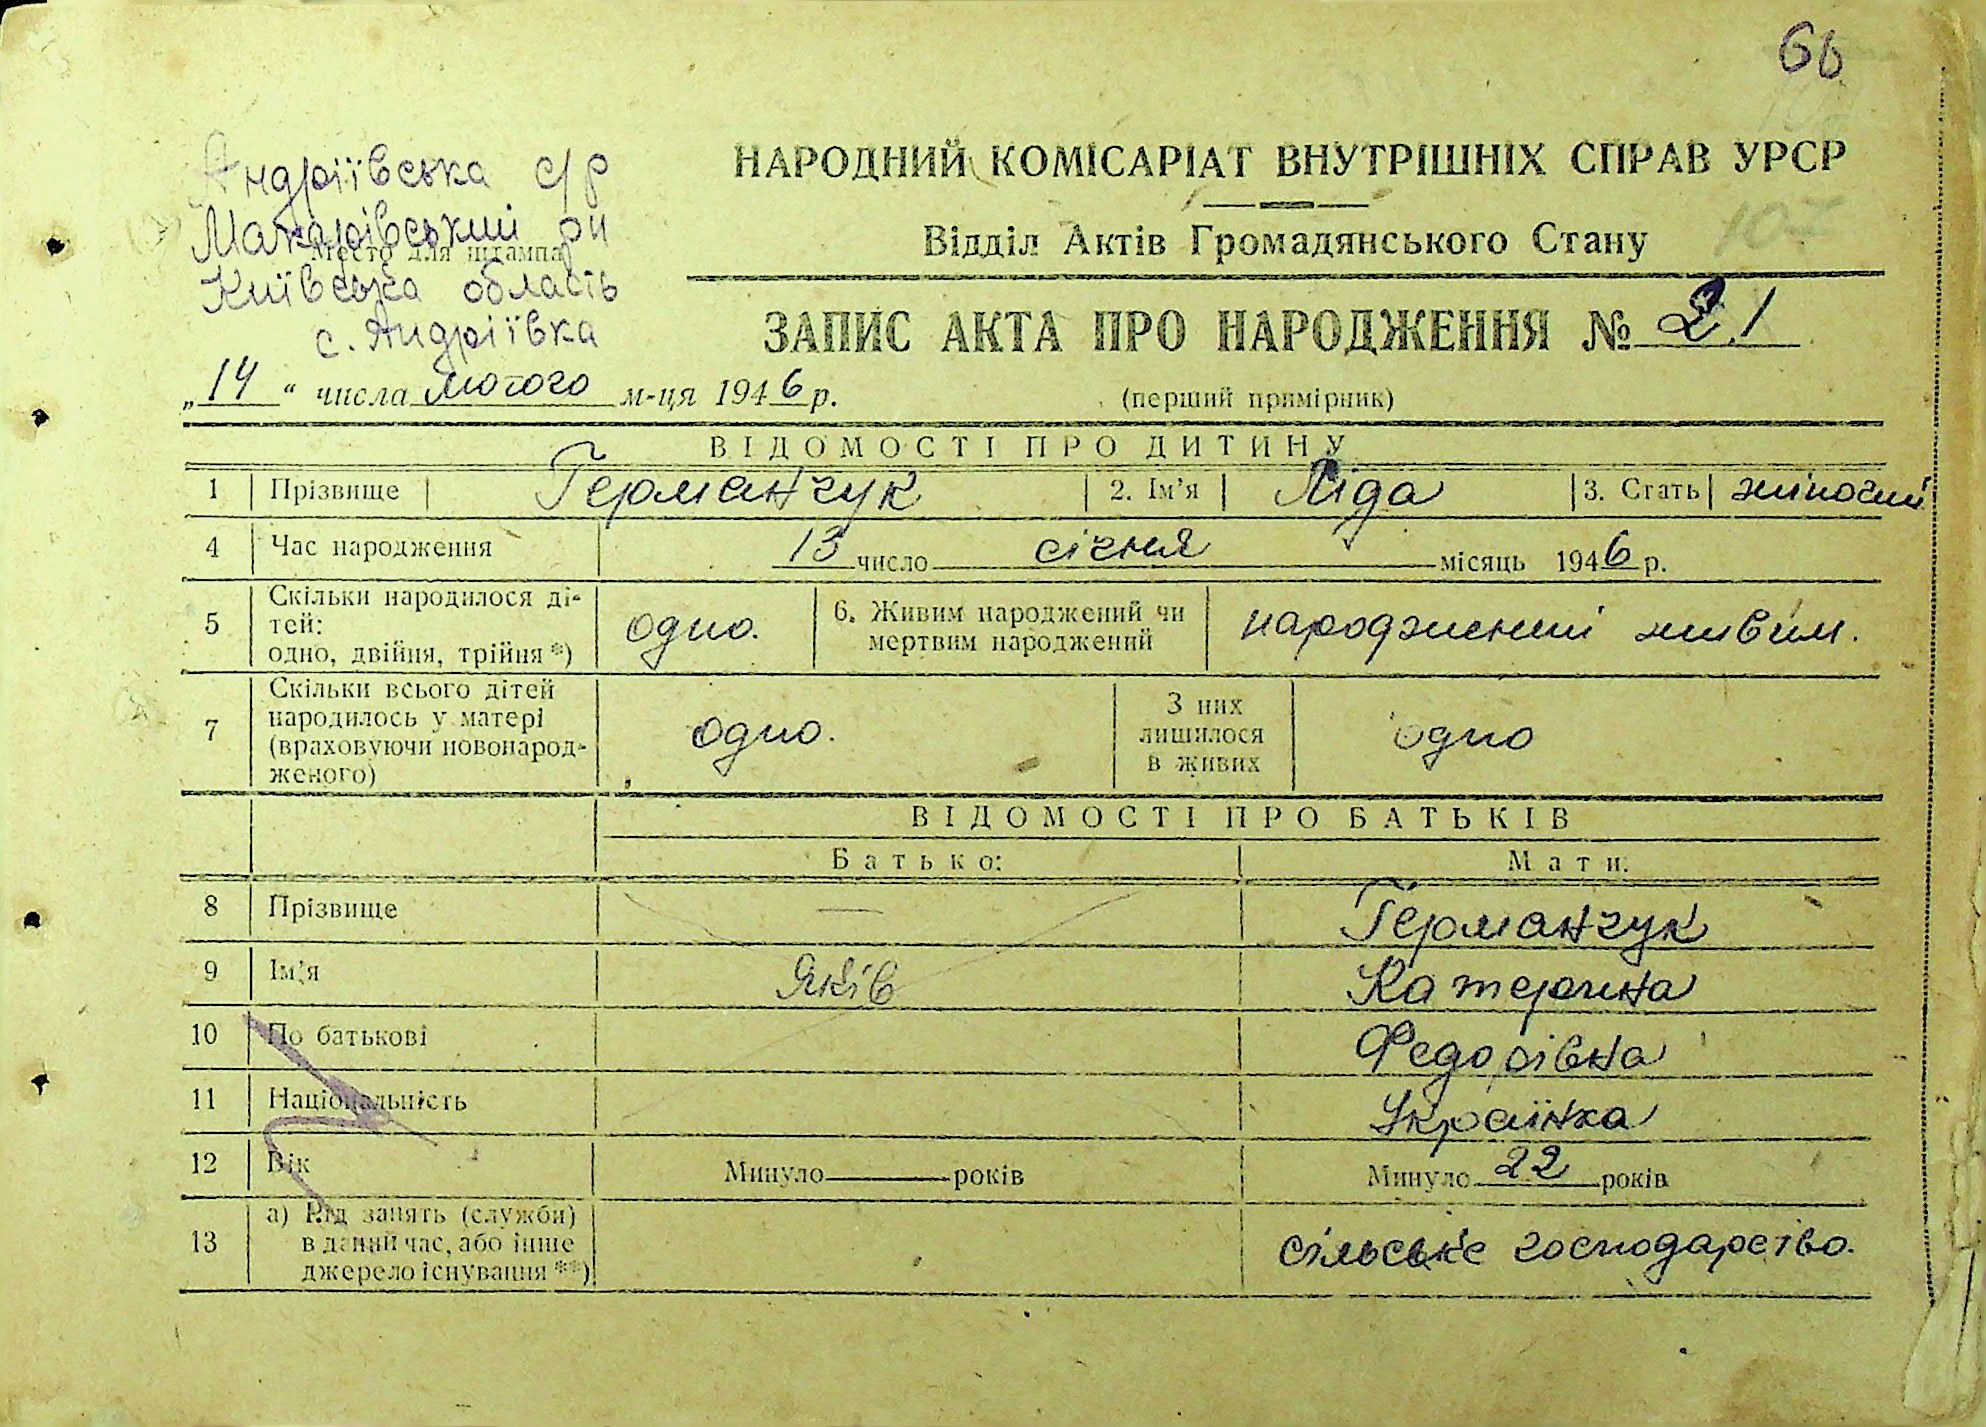 66
107
Андріївська с/р
Макарівський рн
Место для штампа
Київська область
с. Андріївка
НАРОДНИЙ КОМІСАРІАТ ВНУТРІШНІХ СПРАВ УРСР
Відділ Актів Громадянського Стану
ЗАПИС АКТА ПРО НАРОДЖЕННЯ № 21
„14“ числа лютого м-ця 1946 р. (перший примірник)
ВІДОМОСТІ ПРО ДИТИНУ
1 Прізвище Германчук 2. Ім'я Ліда 3. Стать жіночий
4 Час народження 13 число січня місяць 1946 р.
5 Скільки народилося ді-
тей:
одно, двійня, трійня *) одно. 6. Живим народжений чи
мертвим народжений народжений живим.
7 Скільки всього дітей
народилось у матері
(враховуючи новонарод-
женого) одно. З них
лишилося
в живих одно
ВІДОМОСТІ ПРО БАТЬКІВ
Батько: Мати:
8 Прізвище — Германчук
9 Ім'я Яків Катерина
10 По батькові Федорівна
11 Національність Українка
12 Вік Минуло років Минуло 22 років
13 а) Рід занять (служби)
в даний час, або інше
джерело існування **) сільське господарство.